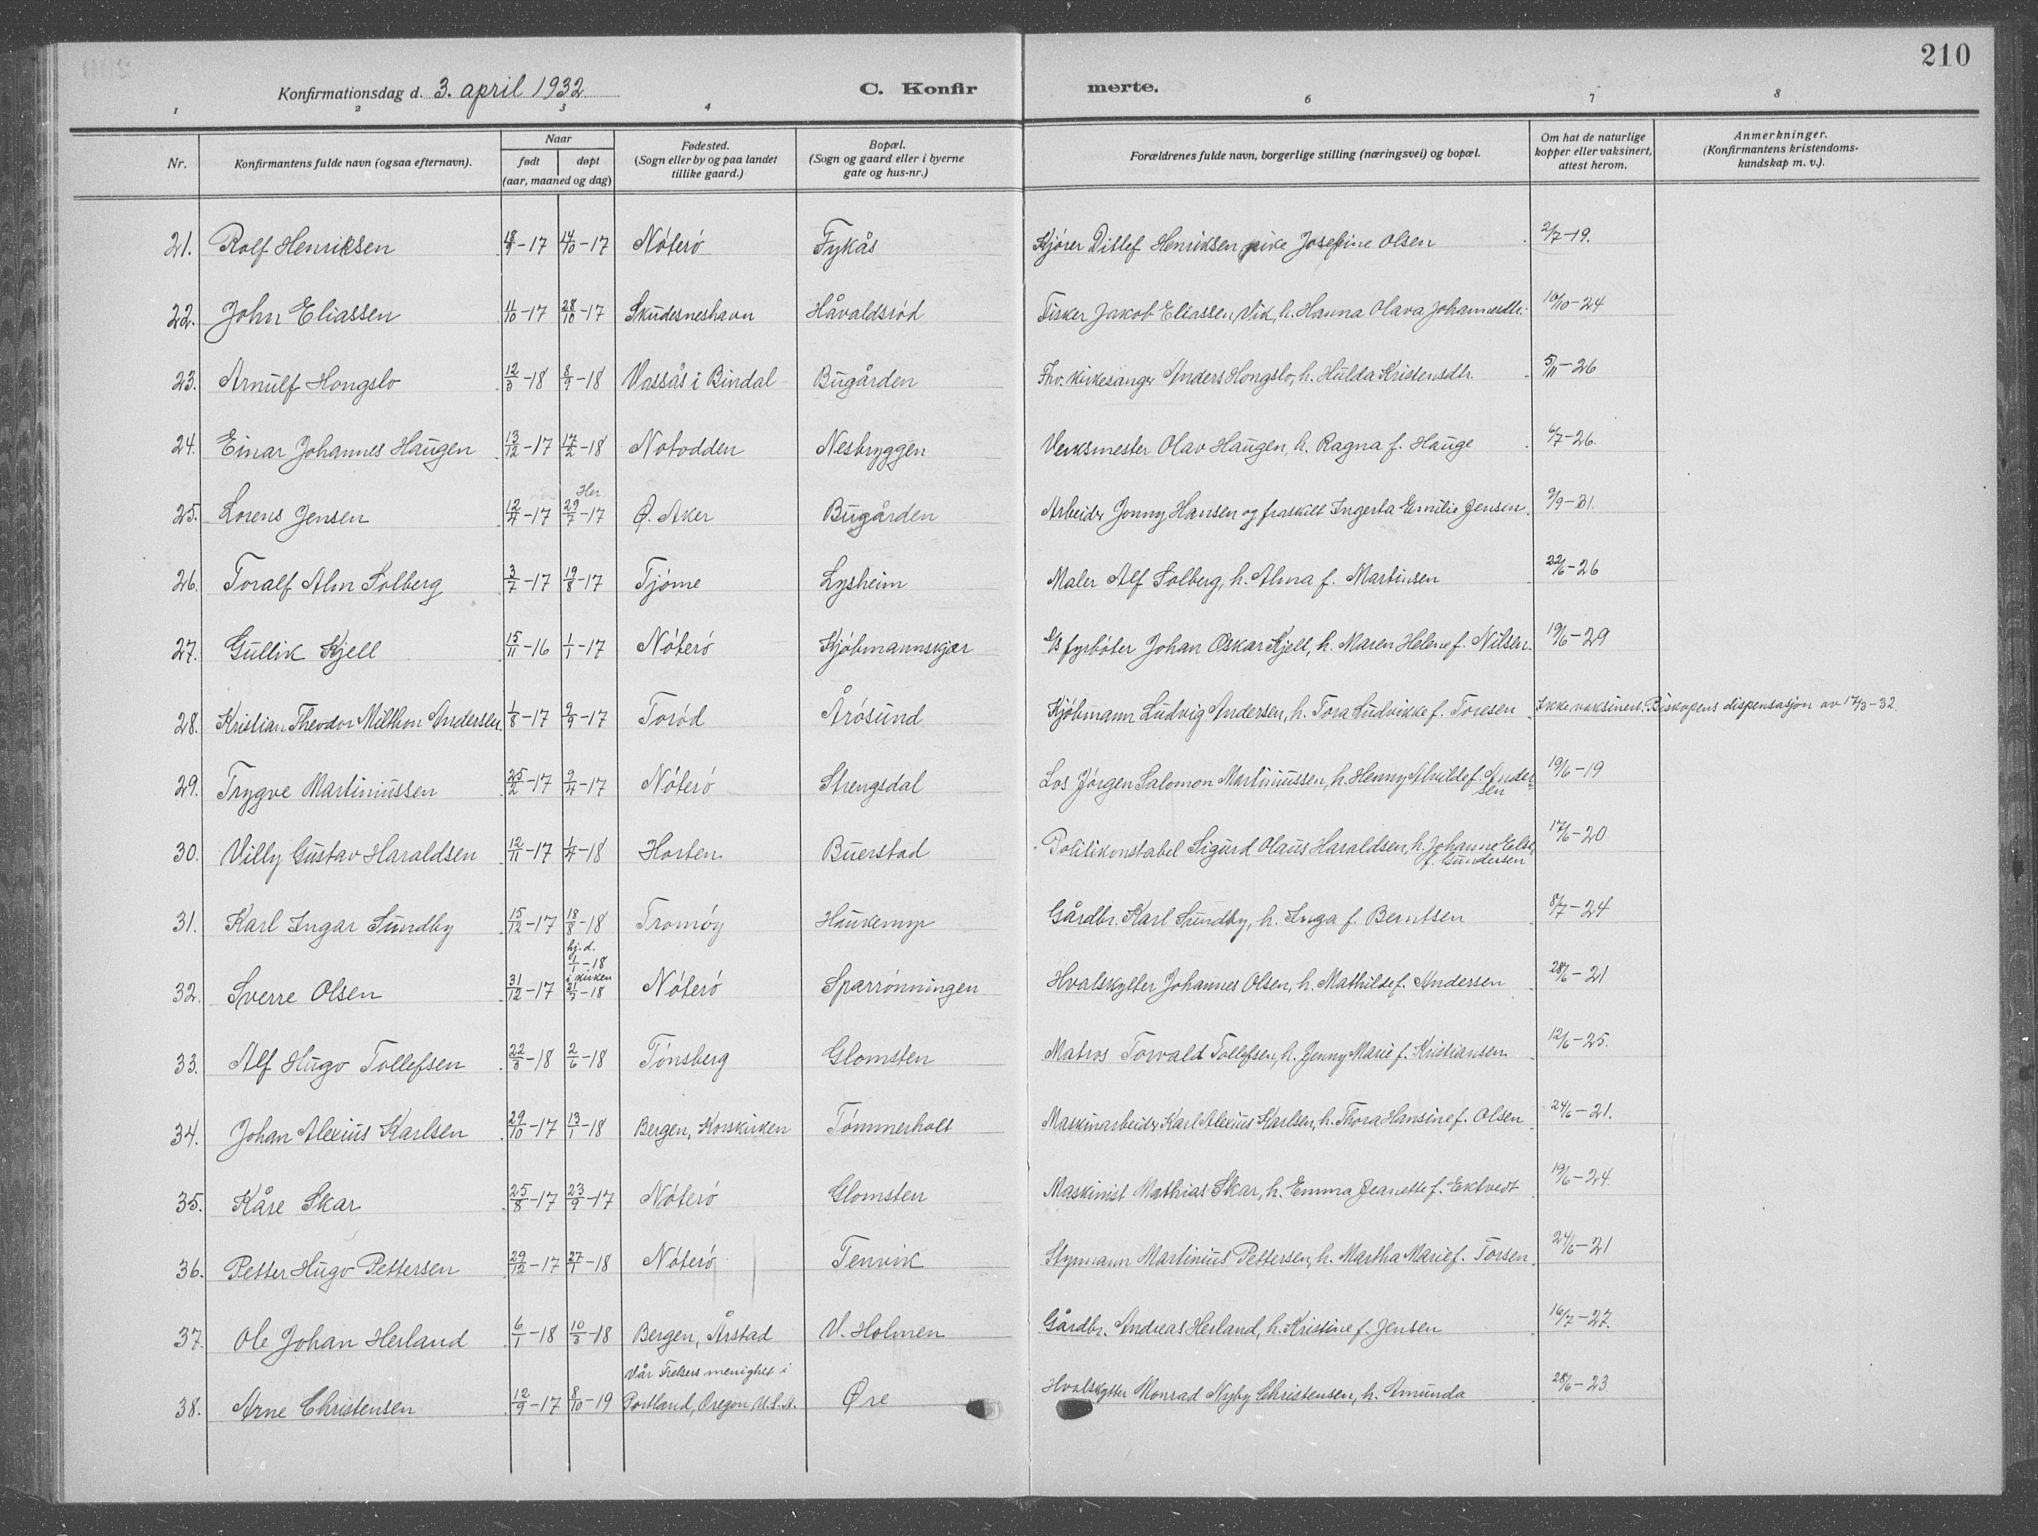 210
Konfirmationsdag d. 3. april 1932 C. Konfirmerte.
1 2 3 4 6 7 8
Nr. Konfirmantens fulde navn (ogsaa efternavn). Naar født døpt (aar, maaned og dag) Fødested. (Sogn eller by og paa landet tillike gaard.) Bopæl. (Sogn og gaard eller i byerne gate og hus-nr.) Forældrenes fulde navn, borgerlige stilling (næringsvei) og bopæl. Om hat de naturlige kopper eller vaksinert, attest herom. Anmerkninger. (Konfirmantens kristendoms-kundskap m. v.).
21. Rolf Henriksen 18/9-17 14/10-17 Nöterö Fykås Kjörer Ditlef Henriksen, pike Josefine Olsen 2/7-19.
22. John Eliassen 11/10-17 28/10-17 Skudesneshavn Håvaldsröd Fisker Jakob Eliassen, Vik, h. Hanna Olava Johannesdtr. 10/10-24
23. Arnulf Hongslo 12/3-18 8/9-18 Vassås i Bindal Bugården Fhv. kirkesanger Anders Hongslo, h. Hulda Kristensdtr. 5/11-26
24. Einar Johannes Haugen 13/12-17 17/2-18 Notodden Nesbryggen Verksmester Olav Haugen, h. Ragna f. Hauge 6/7-26.
25. Lorens Jensen 12/4-17 Her 29/7-17 Ö. Aker Bugården Arbeider Jonny Hansen og fraskilt Ingerta Emilie Jensen. 9/9-31.
26. Toralf Alm Solberg 3/7-17 19/8-17 Tjöme Lysheim Maler Alf Solberg, h. Alma f. Martinsen 22/6-26
27. Gullik Kjell 15/11-16 1/1-17 Nöterö Kjöbmannskjær fyrböter Johan Oskar Kjell, h. Maren Helene f. Nilsen. 19/6-29
28. Kristian Theodor Milthon Andersen 1/8-17 9/9-17 Toröd Årösund Kjöbmann Ludvig Andersen, h. Tora Ludvikke f. Toresen Ikke vaksinert. Biskopens dispensasjon av 17/3-32.
29. Trygve Martiniussen 25/2-17 9/4-17 Nöterö Strengsdal Los Jörgen Salomon Martiniussen, h. Henny Alvilde f. Andersen 19/6-19
30. Villy Gustav Haraldsen 12/11-17 1/4-18 Horten Buerstad Politikonstabel Sigurd Olaus Haraldsen, h. Johanne f. Gundersen 17/6-20
31. Karl Ingar Sundby 15/12-17 18/8-18 Tromöy Haukemyr Gårdbr. Karl Sundby, h. Inga f. Berntsen 8/7-24
32. Sverre Olsen 31/12-17 hj. d. 9/1-18 i kirken 21/5-18 Nöterö Sparrönningen Hvalskytter Johannes Olsen, h. Mathilde f. Andersen 28/6-21
33. Alf Hugo Tollefsen 22/3-18 2/6-18 Tönsberg Glomsten Matros Torvald Tollefsen, h. Jenny Marie f. Kristiansen 12/6-25.
34. Johan Alexius Karlsen 29/10-17 13/1-18 Bergen, Korskirken Tömmerholt Maskinarbeider Karl Alexius Karlsen, h. Thora Hansine f. Olsen 24/6-21.
35. Kåre Skar 25/8-17 23/9-17 Nöterö Glomsten Maskinist Mathias Skar, h. Emma Jeanette f. Ektvedt 19/6-24.
36. Petter Hugo Pettersen 29/12-17 27/1-18 Nöterö Tenvik Styrmann Martinius Pettersen, h. Martha Marie f. Torsen. 24/6-21
37. Ole Johan Herland 6/1-18 10/3-18 Bergen, Årstad V. Holmen Gårdbr. Andreas Herland, h. Kristine f. Jensen 16/7-27.
38. Arne Christensen 12/9-17 8/10-19 Vår Frelsers menighet i Portland, Oregon U.S.A. Öre Hvalskytter Konrad Nyby Christensen, h. Amunda 28/6-23.